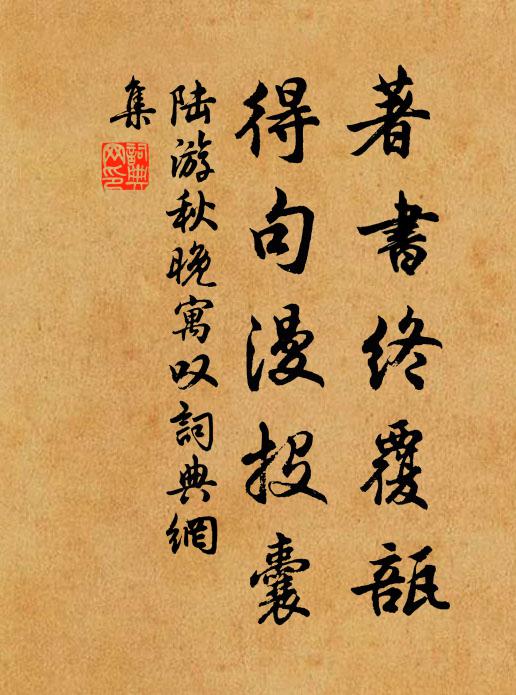 著書終覆瓿
得句漫投囊
陸游秋晚寓叹詞典網
集
詞典網印